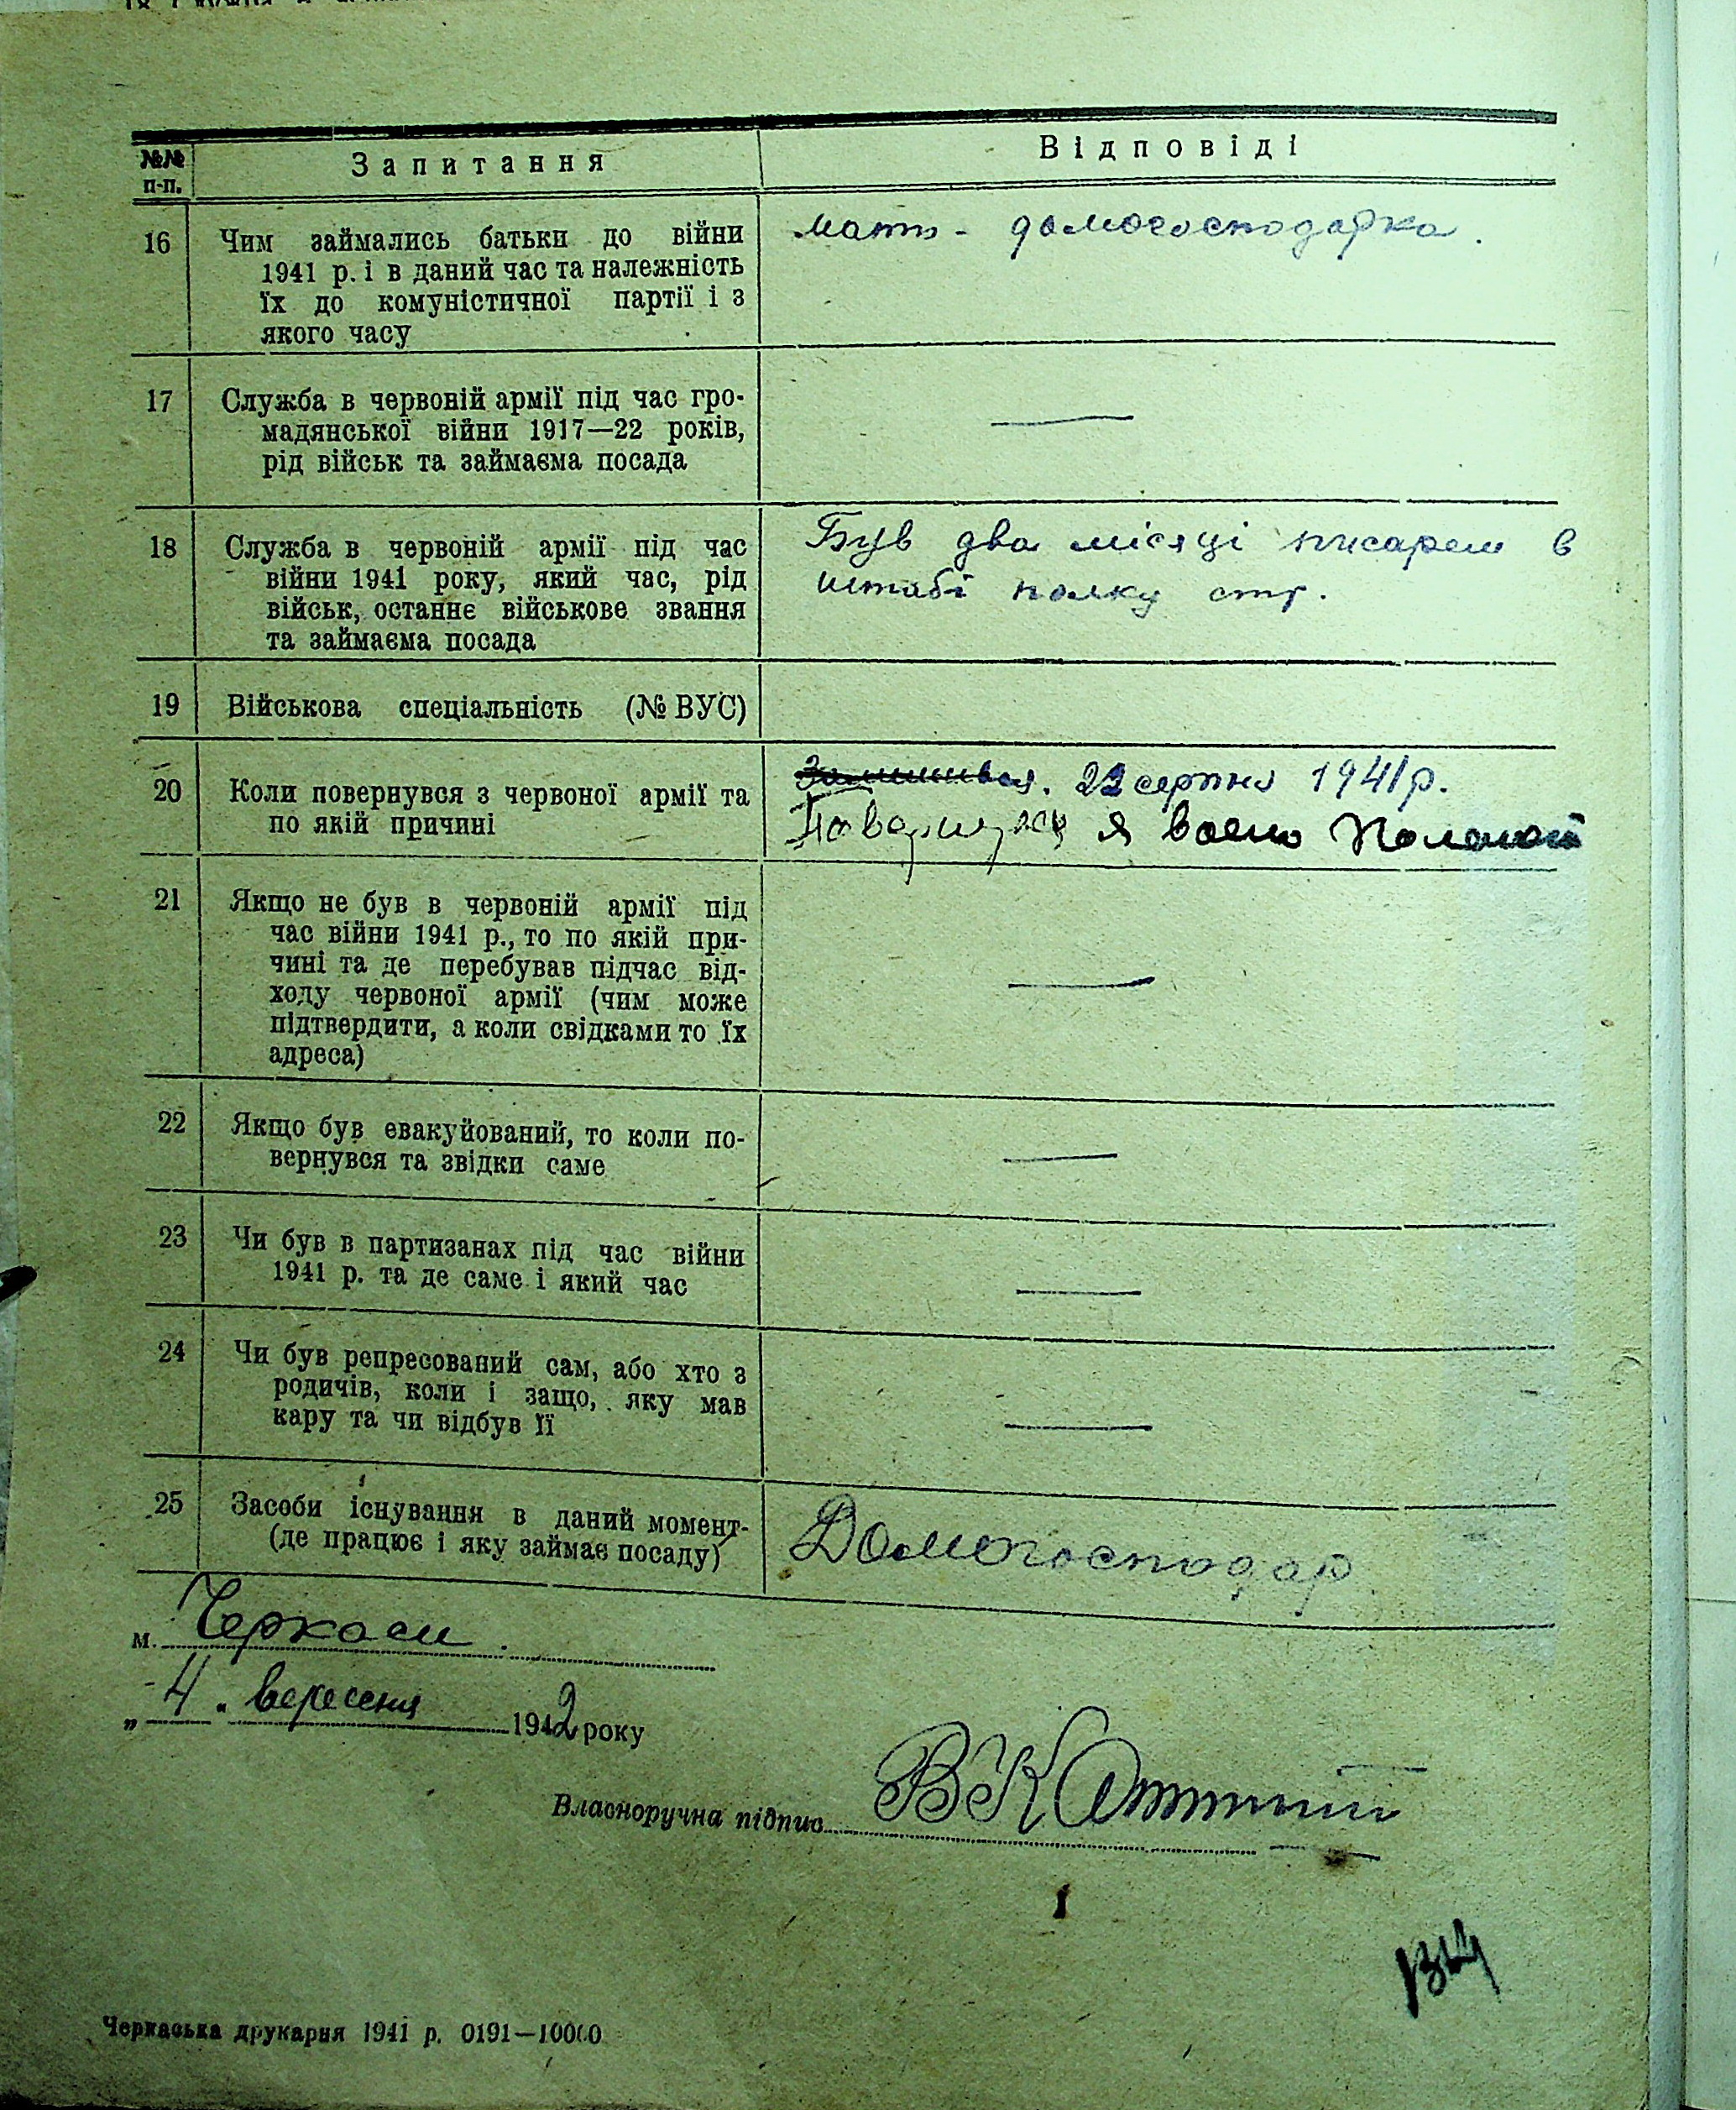 №№ п-п.
Запитання
Відповіді
16
Чим займались батьки до війни
1941 р. і в даний час та належність
їх до комуністичної партії і з
якого часу
мати - домогосподарка.
17
Служба в червоній армії під час гро-
мадянської війни 1917—22 років,
рід військ та займаєма посада
—
18
Служба в червоній армії під час
війни 1941 року, який час, рід
військ, останнє військове звання
та займаєма посада
Був два місяці писарем в
штабі полку стр.
19
Військова спеціальність (№ ВУС)
20
Коли повернувся з червоної армії та
по якій причині
22 серпня 1941 р.
Повернувся я
21
Якщо не був в червоній армії під
час війни 1941 р., то по якій при-
чині та де перебував підчас від-
ходу червоної армії (чим може
підтвердити, а коли свідками то їх
адреса)
—
22
Якщо був евакуйований, то коли по-
вернувся та звідки саме
—
23
Чи був в партизанах під час війни
1941 р. та де саме і який час
—
24
Чи був репресований сам, або хто з
родичів, коли і защо, яку мав
кару та чи відбув її
—
25
Засоби існування в даний момент-
(де працює і яку займає посаду)
Домогосподар
м. Черкаси.
„4" вересня 1942 року
Власноручна підпис
Черкаська друкарня 1941 р. 0191—10000